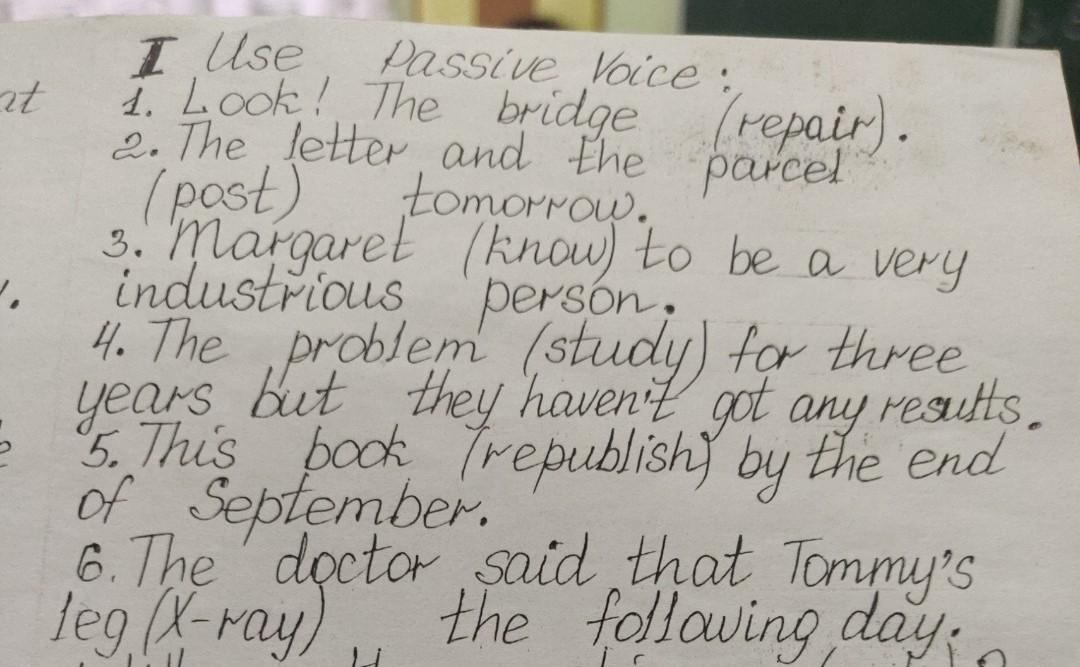 I Use Passive Voice:
at
1. Look! The bridge (repair).
2. The letter and the parcel
(post) tomorrow.
3. Margaret (know) to be a very
industrious person.
4. The problem (study) for three
years but they haven't got any results.
5. This book (republish) by the end
of September.
6. The doctor said that Tommy's
leg (X-ray) the following day.